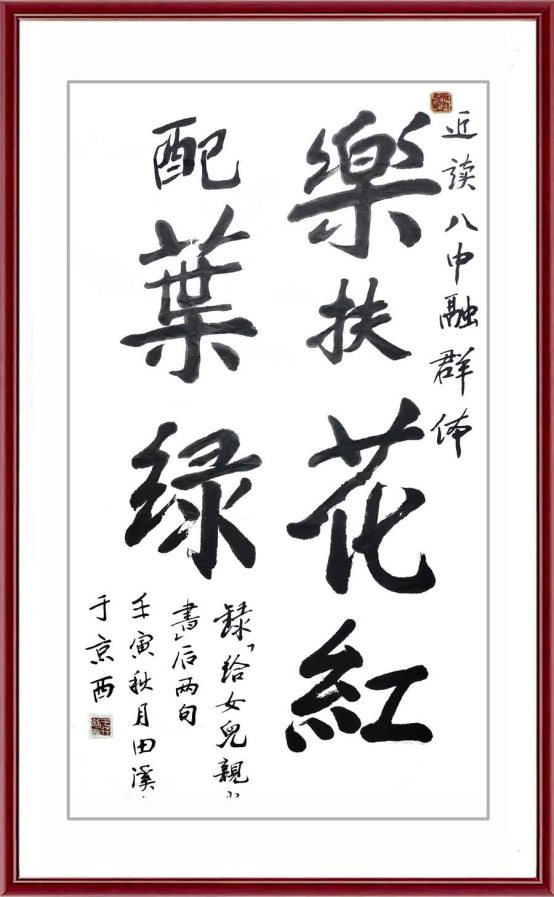 近读八中融群体
樂扶花紅
配葉绿
録「给女兒親
書」后两句
壬寅秋月田溪
于京西